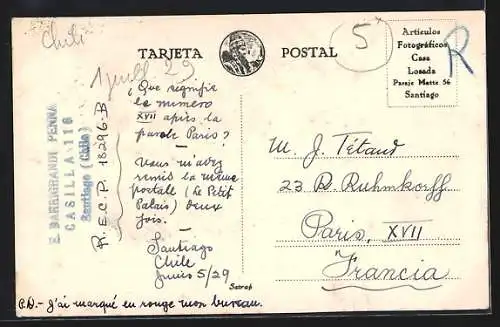 Chili
TARJETA POSTAL
5
R
Artículos
Fotográficos
Casa
Losada
Pasaje Matte 56
Santiago
29
E. BARRIGRANDI PENNA
CASILLA 116
Santiago (Chile)
R.E.C.P. 18296-B
¿Que signifie
le numero
XVII après la
parole Paris?
—
Vous m'avez
remis la même
postale (Le Petit
Palais) deux
fois.
—
Santiago
Chile
Junio 5/29
M. J. Tétaud
23 B. Ruhmkorff
Paris, XVII
Francia
P.D.- J'ai marqué en rouge mon bureau.